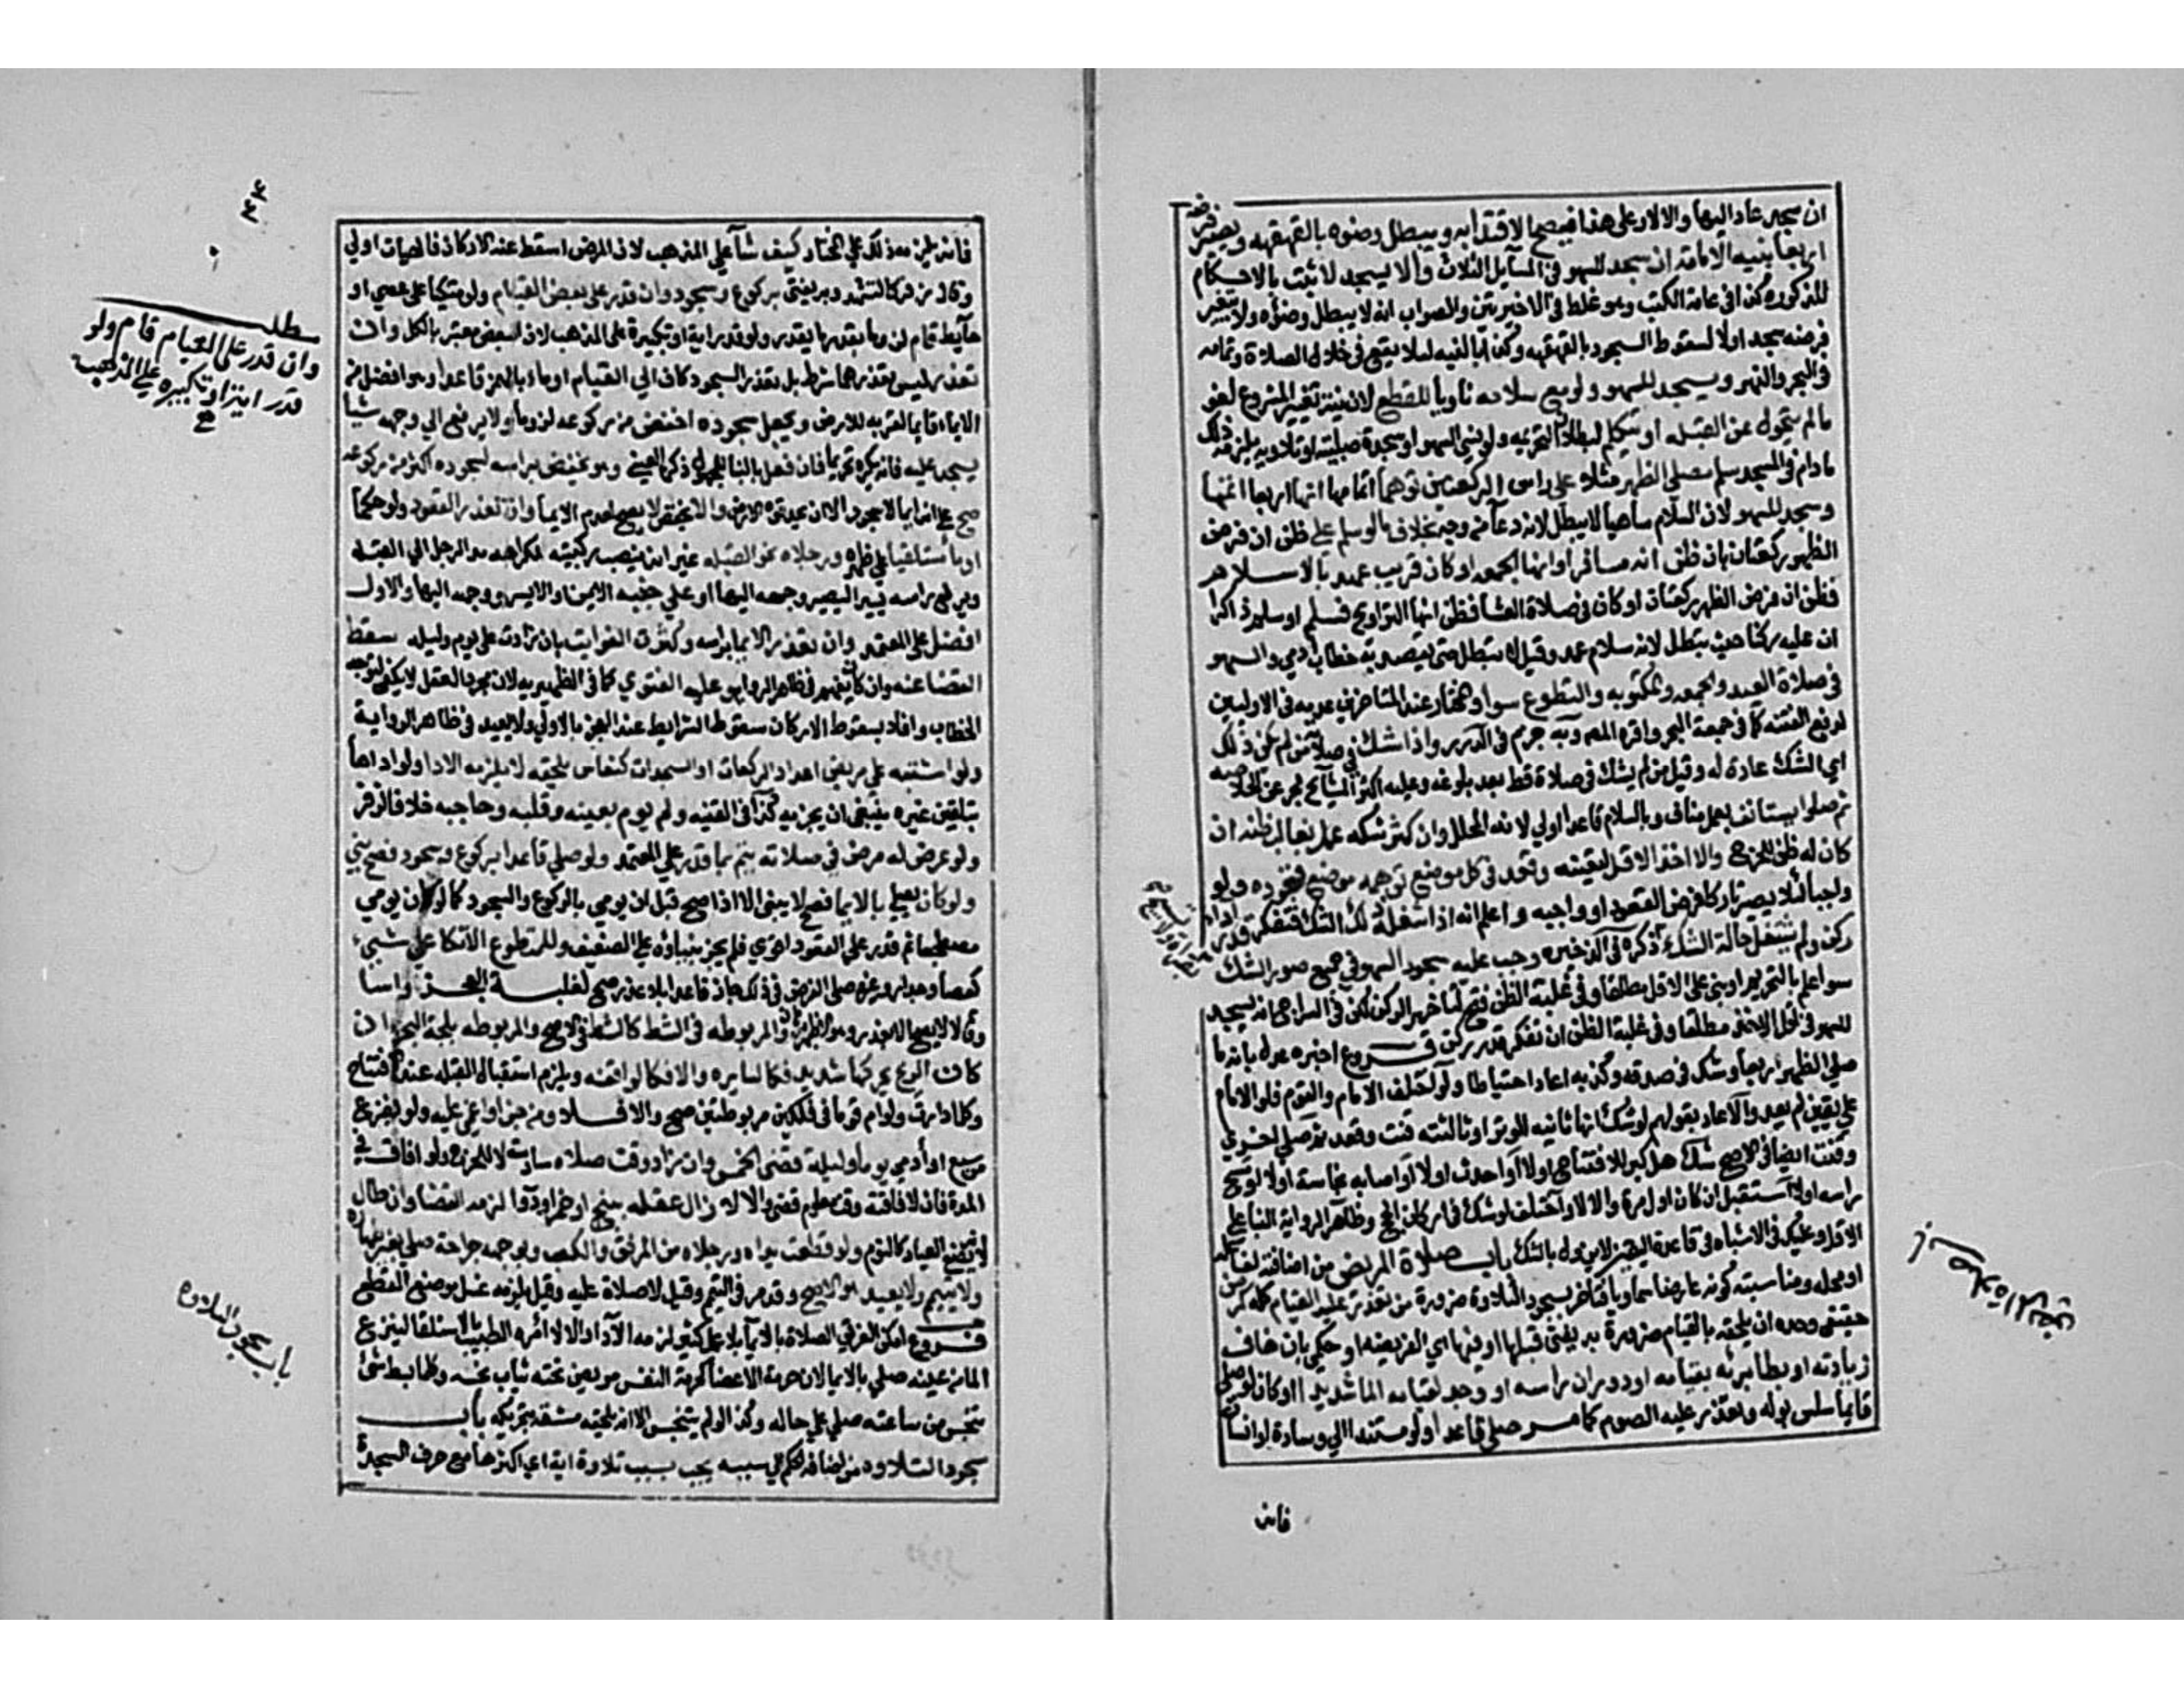 ان سجد عاد اليها والا لا وعلى هذا فيصح الاقتدا به ويبطل وضوه بالقهقهه ويصير فرضه
اربعا بنيه الاقامة ان سجد للسهو في المسايل الثلاث والا يسجد لا تثبت بالاحكام
المذكوره كذا في عامة الكتب وهو غلط في الاخيرتين والصواب انه لا يبطل وضؤه ولا يتغير
فرضه سجد اولا لسقوط السجود بالقهقهه وكذا بالنيه ليلا يقع في خلال الصلاة وتمامه
في البحر والنهر ويسجد للسهو ولو مع سلامه ناويا للقطع لان نية تغيير المشروع لغو
ما لم يتحول عن القبله او يتكلم لبطلان التحريمه ولو نسي السهو او سجدة صلبيه او تلاويه يلزمه ذلك
مادام في المسجد سلم مصلي الظهر مثلا على راس الركعتين توهما اتمامها اتمها اربعا
وسجد للسهو لان السلام ساهيا لا يبطل لانه دعآ من وجه بخلاف ما لو سلم على ظن ان فرض
الظهر ركعتان بان ظن انه مسافر او انها الجمعه او كان قريب عهد بالاسلام
فظن ان فرض الظهر ركعتان او كان في صلاة العشا فظن انها التراويح فسلم او سلم ذاكرا
ان عليه ركنا حيث تبطل لانه سلام عمد وقيل لا تبطل حتى يقصد به خطاب ادمي والسهو
في صلاة العيد والجمعه والمكتوبه والتطوع سوا والمختار عند المتاخرين عدمه في الاوليين
لدفع الفتنه كما في جمعة البحر واقره المص وبه جزم في الدرر واذا شك في صلاته من لم يكن ذلك
اي الشك عادة له وقيل من لم يشك في صلاة قط بعد بلوغه وعليه اكثر المشايخ بحر عن الخلاصه
كم صلى استانف بعمل مناف وبالسلام قاعدا اولى لانه المحلل وان كثر شكه عمل بغالب ظنه ان
كان له ظن للحرج والا اخذ بالاقل لتيقنه وقعد في كل موضع توهمه موضع قعوده ولو
واجبا لئلا يصير تاركا فرض القعود او واجبه واعلم انه اذا شغله ذلك الشك فتفكر قدر اداء
ركن ولم يشتغل حالة الشك ذكره في الذخيره وجب عليه سجود السهو في جميع صور الشك
سوا عمل بالتحري او بنى على الاقل مطلقا وفي غلبة الظن فتح لتاخير الركن لكن في السراج انه يسجد
للسهو في اخذ الاقل مطلقا وفي غلبة الظن ان تفكر قدر ركن فروع اخبره عدل بانه ما
صلى الظهر اربعا وشك في صدقه وكذبه اعاد احتياطا ولو اختلف الامام والقوم فلو الامام
على يقين لم يعد والا اعاد بقولهم لو شك انها ثانيه الوتر او ثالثته قنت وقعد ثم صلى اخرى
وقنت ايضا في الاصح شك هل كبر للافتتاح اولا او احدث اولا او اصابه نجاسة اولا او مسح
راسه اولا استقبل ان كان اول مرة والا لا واختلف لو شك في اركان الحج وظاهر الرواية البنا على
الاقل وعليك في الاشباه في قاعدة اليقين لا يزول بالشك باب صلاة المريض من اضافة الفعل لفاعله
او محله ومناسبته كونه عارضا سماويا فتاخر سجود التلاوة ضرورة من تعذر عليه القيام كله لمرض
حقيقي وحده ان يلحقه بالقيام ضرر به يفتى قبلها او فيها اي الفريضه او حكمي بان خاف
زيادته او بطا برئه بقيامه او دوران راسه او وجد لقيامه الما شديدا او كان لو صلى
قايما سلس بوله او تعذر عليه الصوم كما مر صلى قاعدا ولو مستندا الى وسادة او انسان
فانه
باب صلاة المريض
فانه يلزمه ذلك على المختار كيف شآ على المذهب لان المرض اسقط عنه الاركان فالهيات اولى
وقال زفر كالتشهد وبه يفتى بركوع وسجود وان قدر على بعض القيام ولو متكيا على عصي او
حآيط قام لزوما بقدر ما يقدر ولو قدر اية او تكبيرة على المذهب لان البعض معتبر بالكل وان
تعذرا ليس تعذرهما شرط بل تعذر السجود كاف الى القيام اوما بالهمز قاعدا وهو افضل من
الايماء قايما لقربه للارض ويجعل سجوده اخفض من ركوعه لزوما ولا يرفع الى وجهه شيا
يسجد عليه فانه يكره تحريما فان فعل بالبنا للمجهول ذكره العيني وهو يخفض براسه لسجوده اكثر من ركوعه
صح على انه ايما لا سجود الا ان يجد قوة الارض والا يخفض لا يصح لعدم الايما وان تعذر القعود ولو حكما
اوما مستلقيا على ظهره ورجلاه نحو القبله غير انه ينصب ركبتيه لكراهة مد الرجل الى القبله
ويرفع راسه يسيرا ليصير وجهه اليها او على جنبه الايمن او الايسر ووجهه اليها والاول
افضل على المعتمد وان تعذر الايما براسه وكثرت الفوايت بان زادت على يوم وليله سقط
القضا عنه وان كان يفهم في ظاهر الروايه وعليه الفتوى كما في الظهيريه لان مجرد العقل لا يكفي لتوجه
الخطاب وافاد بسقوط الاركان سقوط الشرايط عند العجز بالاولى ولا يعيد في ظاهر الرواية
ولو اشتبه على مريض اعداد الركعات او السجدات لنعاس يلحقه لا يلزمه الادا ولو اداها
بتلقين غيره ينبغي ان يجزيه كذا في القنيه ولم يوم بعينه وقلبه وحاجبه خلافا لزفر
ولو عرض له مرض في صلاته يتم بما قدر على المعتمد ولو صلى قاعدا بركوع وسجود فصح بنى
ولو كان يصلي بالايما فصح لا يبنى الا اذا صح قبل ان يومي بالركوع والسجود كما لو كان يومي
مضطجعا ثم قدر على القعود فلم يجز بناؤه على الضعيف وللمتطوع الاتكا على شيئ
كعصا وجدار
كان الريح يحركها شديدا فكالسايره والا فكالواقفه ويلزم استقبال القبله عند الافتتاح
وكلما دارت ولو ام قوما في فلكين مربوطتين صح والا لا ومن جن او اغمي عليه ولو بفزع
من سبع او آدمي يوما وليلة قضى الخمس وان زاد وقت صلاة سادسة لا للحرج ولو افاق في
المدة فان لافاقته وقت معلوم قضى والا لا زال عقله ببنج او خمر او دوا لزمه القضا وان طال
لانه بصنع العباد كالنوم ولو قطعت يداه ورجلاه من المرفق والكعب وبوجهه جراحة صلى بغير طهارة
ولا تيمم ولا يعيد هو الاصح وقد مر في التيمم وقيل لا صلاة عليه وقيل يلزمه غسل موضع القطع
فروع امكن الغريق الصلاة بالايما بلا عمل كثير لزمه الادا والا لا امره الطبيب بالاستلقا لبزغ
الما من عينه صلى بالايما لان حرمة الاعضا كحرمة النفس مريض تحته ثياب نجسه وكلما بسط شئ
تنجس من ساعته صلى على حاله وكذا لو لم يتنجس الا انه يلحقه مشقه بتحريكه باب
سجود التلاوة من اضافة الحكم الى سببه يجب بسبب تلاوة اية اي اكثرها مع حرف السجدة
مطلب
وان قدر على القيام قام ولو
قدر اية او تكبيره على المذهب
باب سجود التلاوة